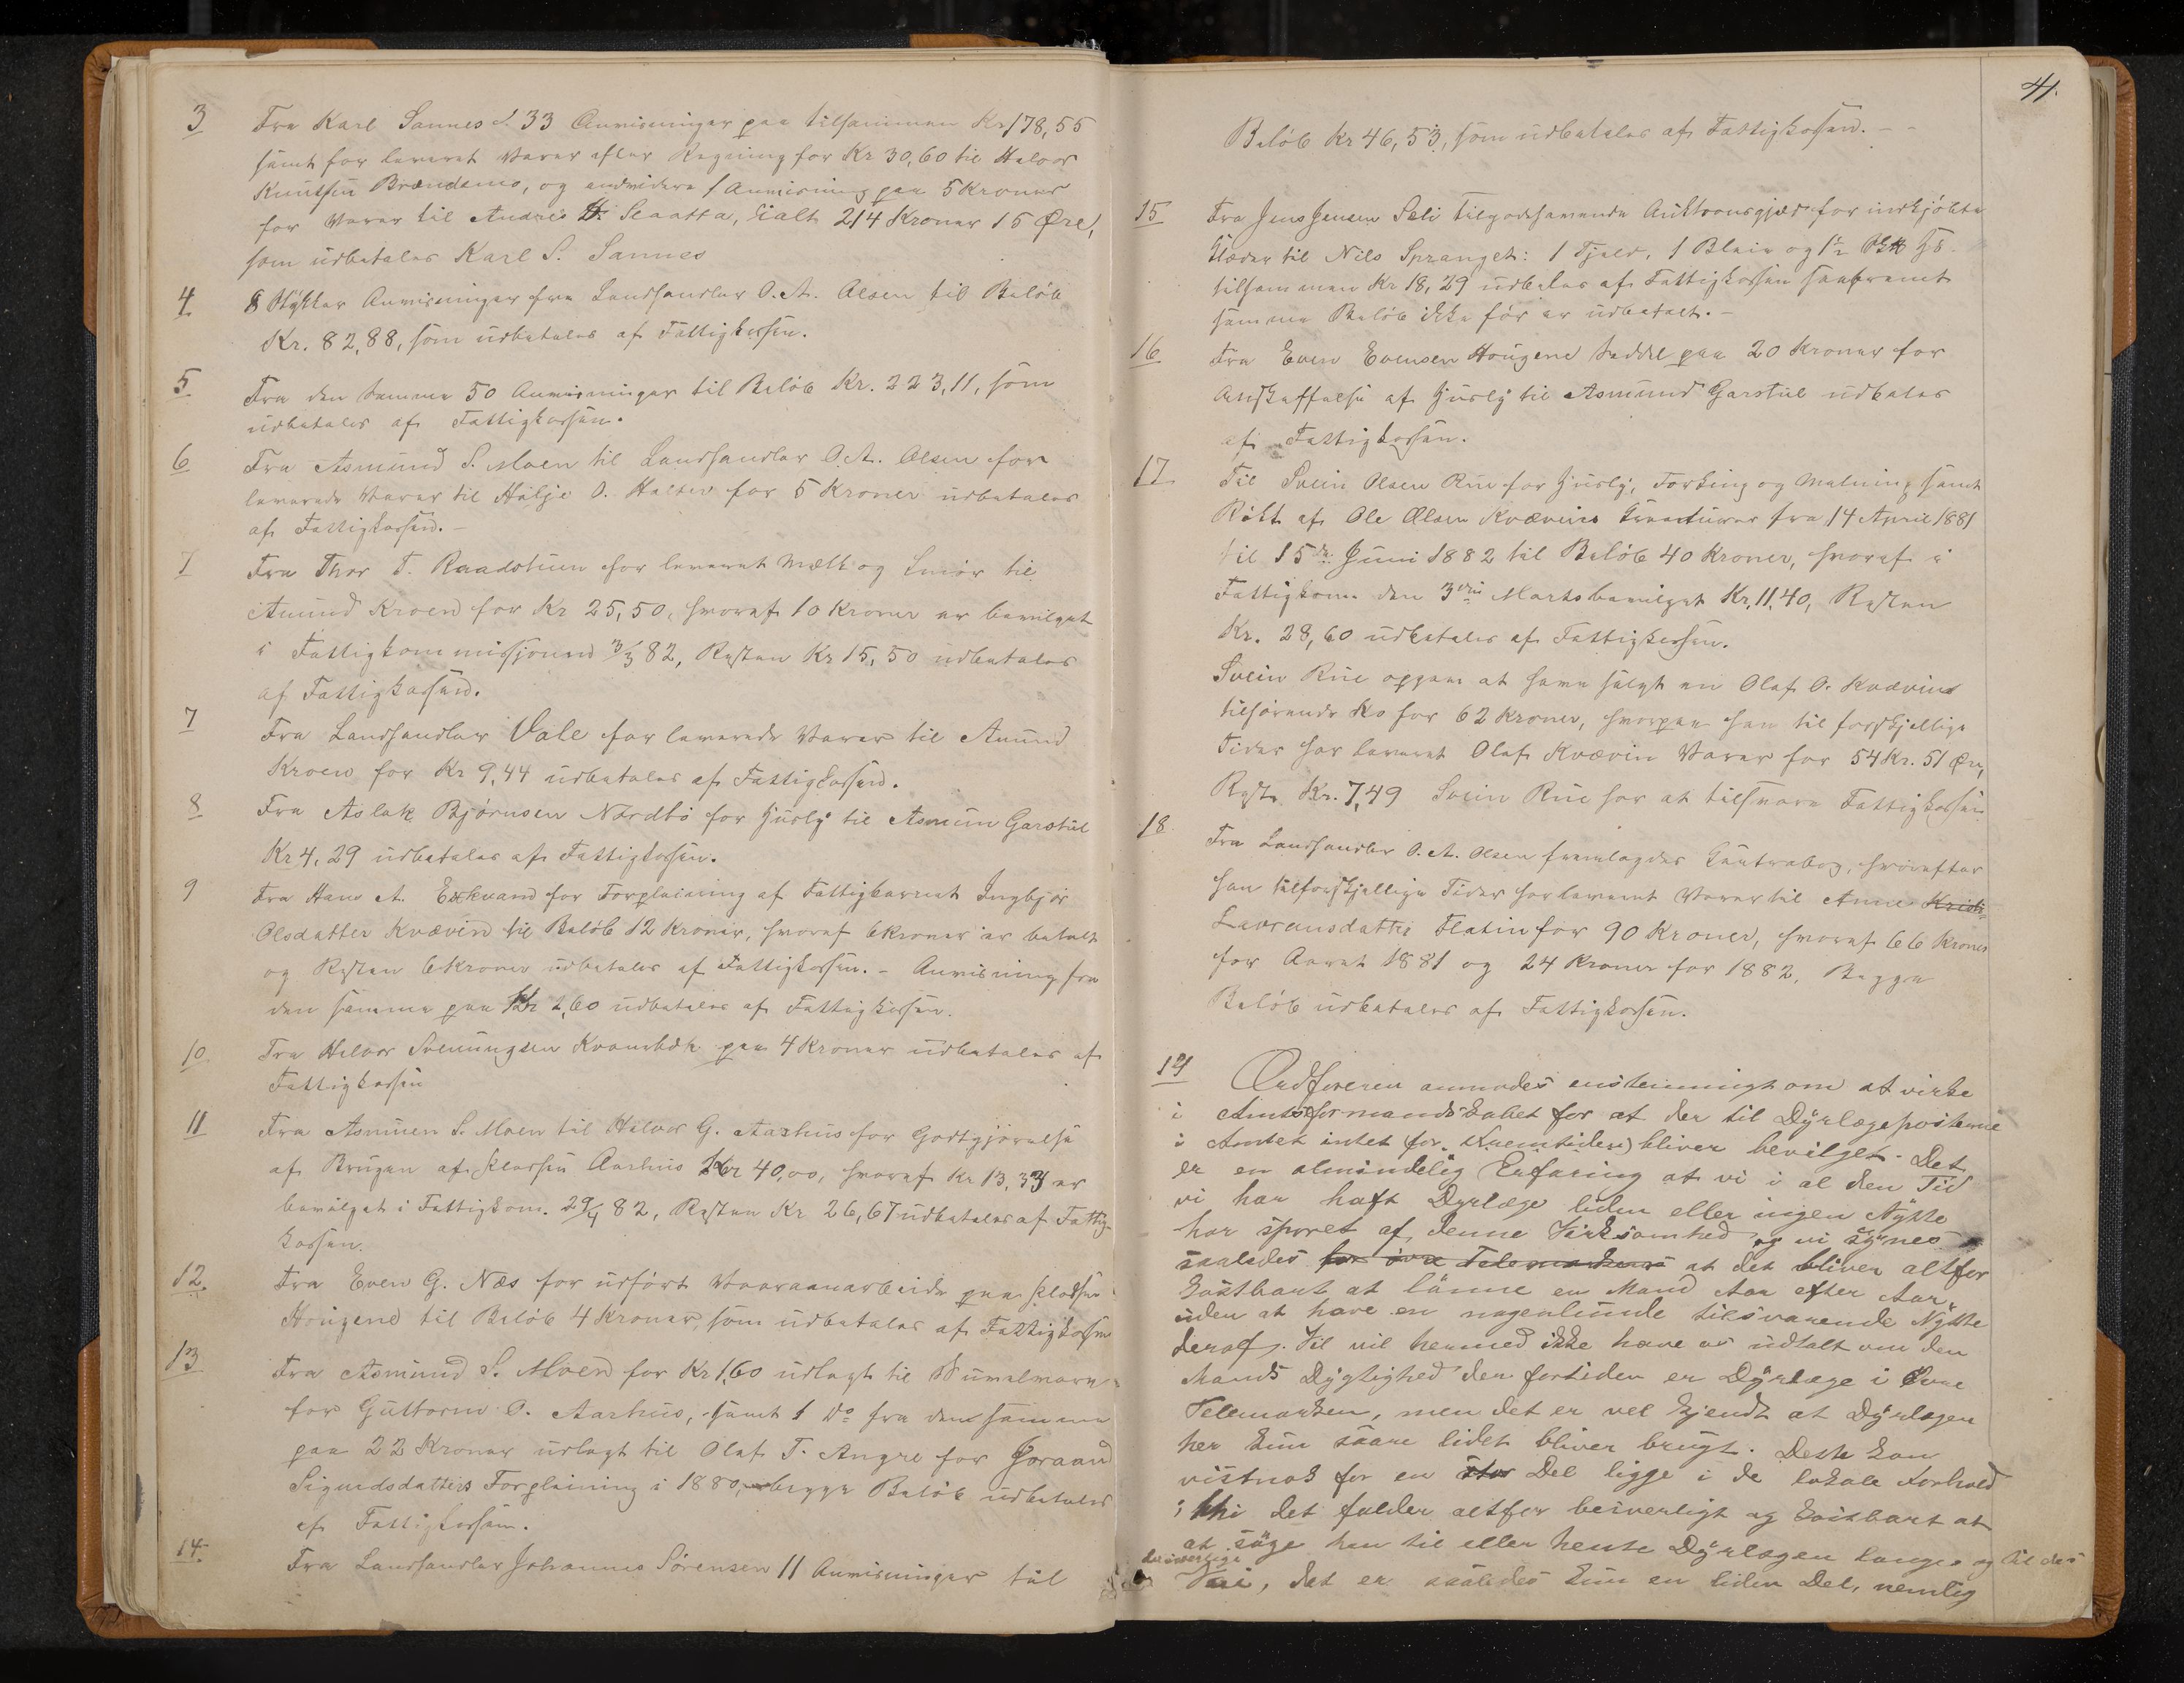 3 Fra Karl Sannes 33 Anvisninger paa tilsammen Kr 178,55
samt for leveret Varer efter Regning for Kr 30,60 til Halvor
Knutsen Brændemo, og endvidere 1 Anvisning paa 5 Kroner
for Varer til Andres H. Slaatta, ialt 214 Kroner 15 Øre,
som udbetales Karl S. Sannes
4 8 Stykker Anvisninger fra Landhandler O. A. Olsen til Beløb
Kr. 82,88, som udbetales af Fattigkassen.
5 Fra den samme 50 Anvisninger til Beløb Kr. 223,11, som
udbetales af Fattigkassen.
6 Fra Asmund S. Moen til Landhandler O. A. Olsen for
leverede Varer til Helje O. for 5 Kroner udbetales
af Fattigkassen. –
7 Fra Thor T. Raadstuen for leveret Mælk og Smør til
Amund Kroen for Kr 25,50, hvoraf 10 Kroner er bevilget
i Fattigkommissjonen 3/3 82, Resten Kr 15,50 udbetales
af Fattigkassen.
7 Fra Landhandler Vale for leverede Varer til Amund
Kroen for Kr 9,44 udbetales af Fattigkassen.
8 Fra Aslak Bjørnsen Nordbø for Husly til Asmun Garstul
Kr 4,29 udbetales af Fattigkassen.
9 Fra Hans A. for Forpleining af Fattigbarnet Ingbjør
Olsdatter Kvævin til Beløb 12 Kroner, hvoraf 6 Kroner er betalt
og Resten 6 Kroner udbetales af Fattigkassen. – Anvisning fra
den samme paa Kr 2,60 udbetales af Fattigkassen.
10. Fra Halvor Sveinungsen Kvambæk paa 4 Kroner udbetales af
Fattigkassen
11 Fra Asmuen S. Moen til Halvor G. Aarhus for Godtgjørelse
af Brugen af Pladsen Aarhus Kr 40,00, hvoraf Kr 13,33 er
bevilget i Fattigkom. 29/4 82, Resten Kr 26,67 udbetales af Fattig-
kassen.
12. Fra Even G. Næs for udført Vaaraanarbeide paa Pladsen
Hougene til Beløb 4 Kroner, som udbetales af Fattigkassen
13 Fra Asmund S. Moen for Kr 1,60 udlagt til
for Guttorm O. Aarhus, samt 1 Do fra den samme
paa 22 Kroner udlagt til Olaf T. Angre for Joraand
Sigurdsdatters Forpleining i 1880, begge Beløb udbetales
af Fattigkassen.
14. Fra Landhandler Johannes Sørensen 11 Anvisninger til
41.
Beløb Kr 46,53, som udbetales af Fattigkassen. – –
15 Fra Jens Jensen Sæli tilgodehavende Auktionsgjæld for indkjøbte
Klæder til Nils Spranget: 1 Tjeld, 1 Bleie og 1½
tilsammen Kr 18,29 udbetales af Fattigkassen saafremt
samme Beløb ikke før er udbetalt. –
16 Fra Even Evensen Hougene Seddel paa 20 Kroner for
Anskaffelse af Husly til Asmund Garstul udbetales
af Fattigkassen.
17 Til Svein Olsen Rue for Husly, Forking og Malning samt
Røkt af Ole Olsen Kvævins Kreaturer fra 14 April 1881
til 15de Juni 1882 til Beløb 40 Kroner, hvoraf i
Fattigkom. den 3die Marts bevilget Kr. 11,40, Resten
Kr. 28,60 udbetales af Fattigkassen.
Svein Rue opgav at have solgt en Olaf O. Kvævin
tilhørende Ko for 62 Kroner, hvorpaa han til forskjellige
Tider har leveret Olaf Kvævin Varer for 54 Kr. 51 Øre,
Reste Kr. 7,49 Svein Rue har at tilsvare Fattigkassen
18 Fra Landhandler O. A. Olsen fremlagdes Contrabog, hvorefter
han til forskjellige Tider har leveret Varer til Anne Kristi
Lavransdatter Flatin for 90 Kroner, hvoraf 66 Kroner
for Aaret 1881 og 24 Kroner for 1882. Begge
Beløb udbetales af Fattigkassen.
19 Ordføreren anmodes enstemmigt om at virke
i Amtsformandskabet for at der til Dyrlægeposterne
i Amtet intet (for Fremtiden) bliver bevilget. Det
er en almindelig Erfaring at vi i al den Tid
vi har haft Dyrlæge liden eller ingen Nytte
har sporet af denne Virksomhed og vi synes
saaledes for øvre Telemarken at det bliver altfor
kostbart at lønne en Mand Aar efter Aar,
uden at have en nogenlunde tilsvarende Nytte
deraf. Vil vil hermed ikke have os udtalt om den
Mands Dygtighed der fortiden er Dyrlæge i Øvre
Telemarken, men det er vel kjendt at Dyrlægen
her kun saare lidet bliver brugt. Dette kan
vistnok for en stor Del ligge i de lokale Forhold
; thi det falder altfor besværligt og kostbart at
at søge hen til eller hente Dyrlægen lange og til des
besværlige
Vei, det er saaledes kun en liden Del, nemlig